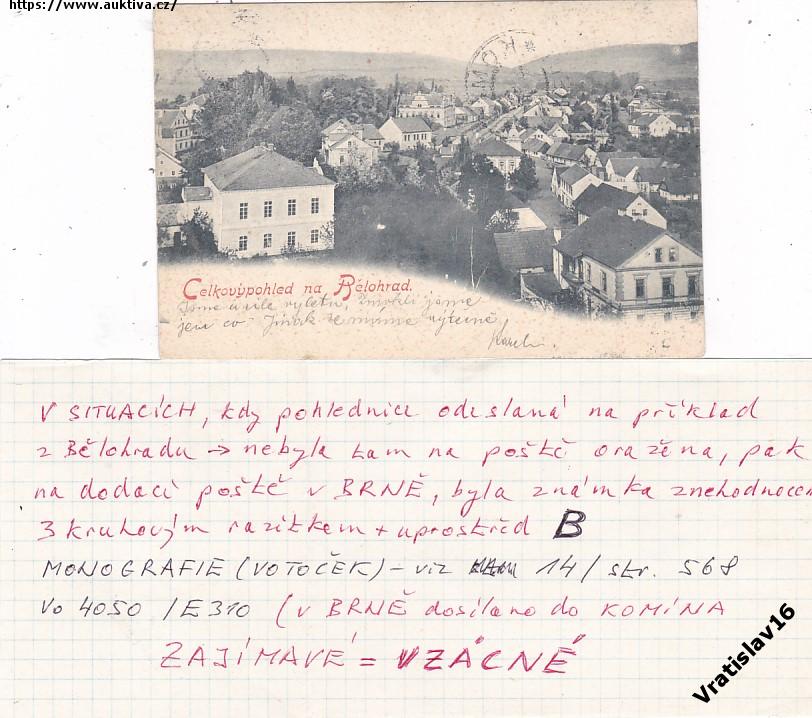 https://www.auktiva.cz/
KOM
Celkovýpohled na Bělohrad.
jsme
jen co - Jinak se máme výtečně
Karel
V SITUACÍCH, kdy pohlednice odeslaná na příklad
z Bělohradu → nebyla tam na poště oražena, pak
na dodací poště v BRNĚ, byla známka znehodnocen
3 kruhovým razítkem + uprostřed B
MONOGRAFIE (VOTOČEK) - viz 14/ str. 568
Vo 4050 /E310 (v BRNĚ dosíláno do KOMÍNA
ZAJÍMAVÉ = VZÁCNÉ
Vratislav16